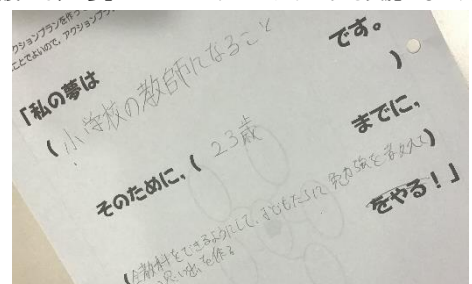 クションプランを作っ
ことでよいので、アクションプ
「私の夢は
(小学校の教師になること
です。
)
そのために、( 23歳
までに、
(全教科をできるようにして、子どもたちに
思い出を作る
)
をやる！」